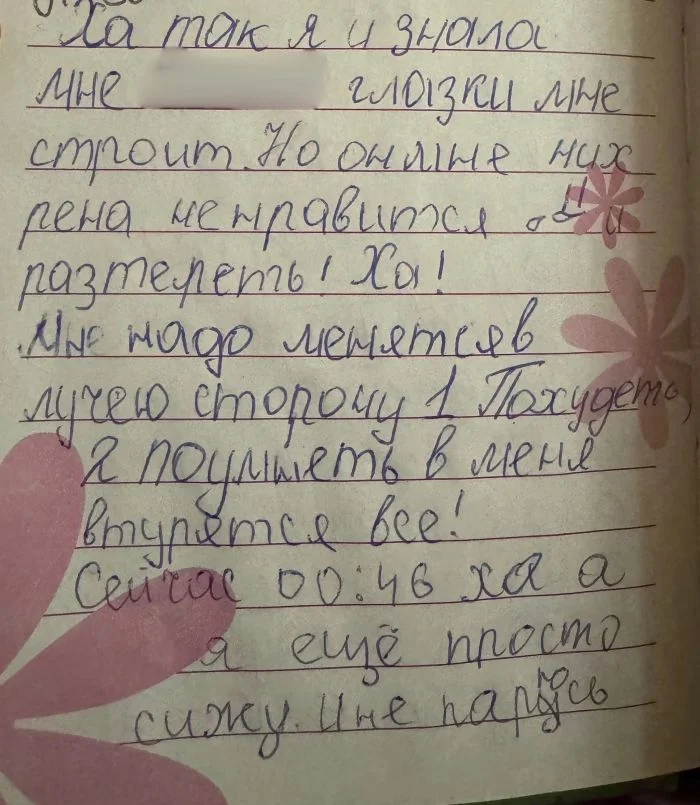 Ха так я и знала
мне глазки мне
строит. Но он мне них
рена не нравится и
разтереть! Ха!
Мне надо менятся в
лучею сторону 1 Похудеть,
2 поумнеть в меня
втурятся все!
Сейчас 00:46 ха а
я ещё просто
сижу. И не парюсь